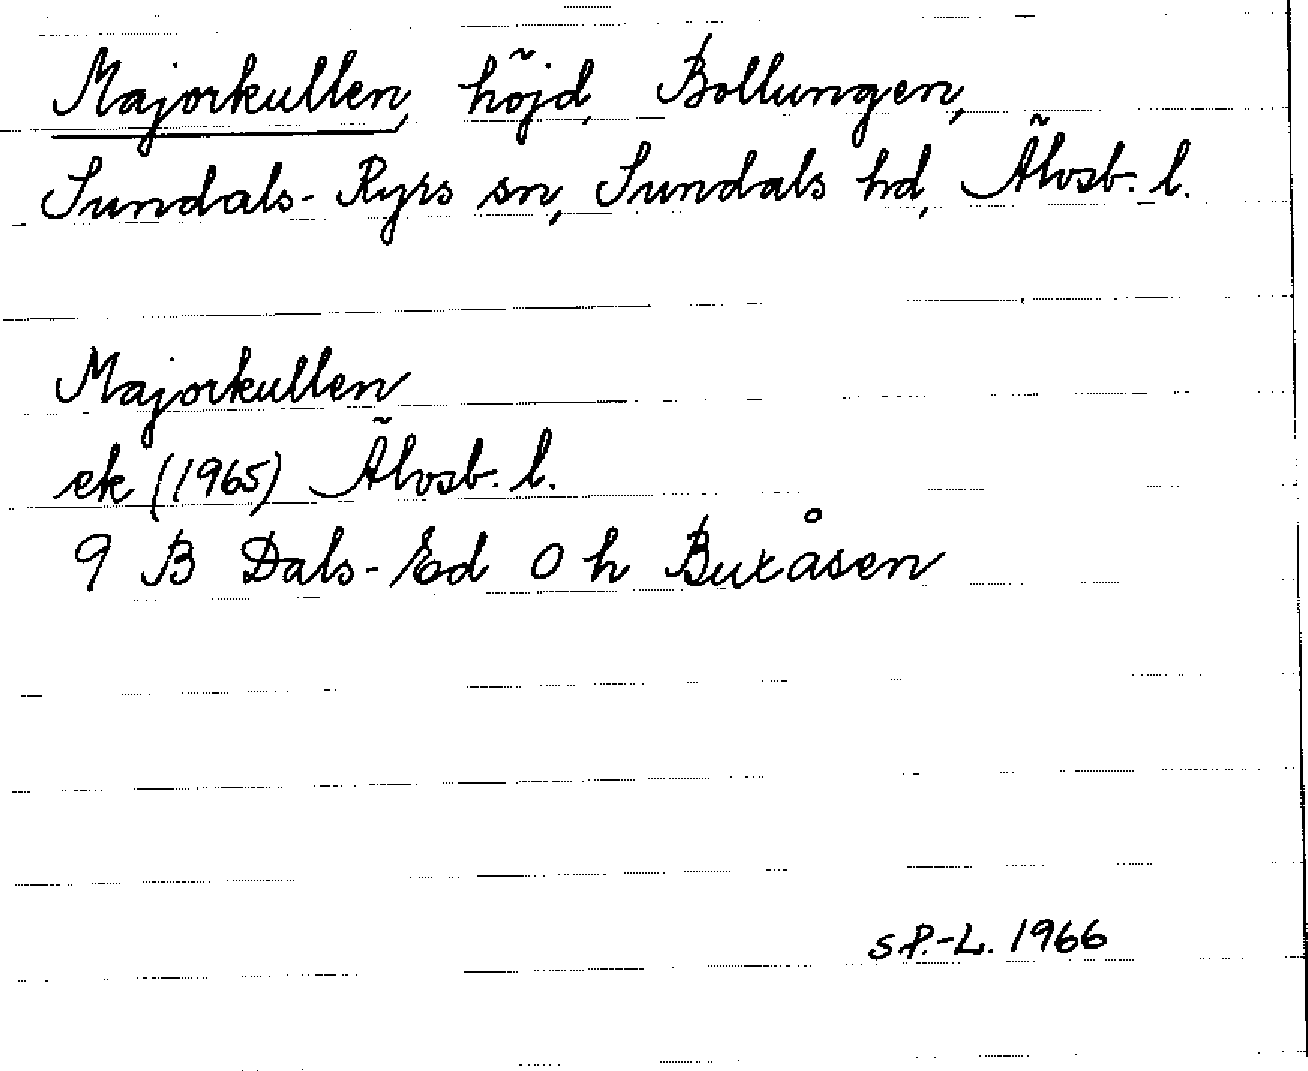 Majorkullen, höjd, Bollungen,
Sundals-Ryrs sn, Sundals hd, Älvsb. l.
Majorkullen
ek (1965) Älvsb. l.
9 B Dals-Ed 0 h Buxåsen
S P.-L. 1966